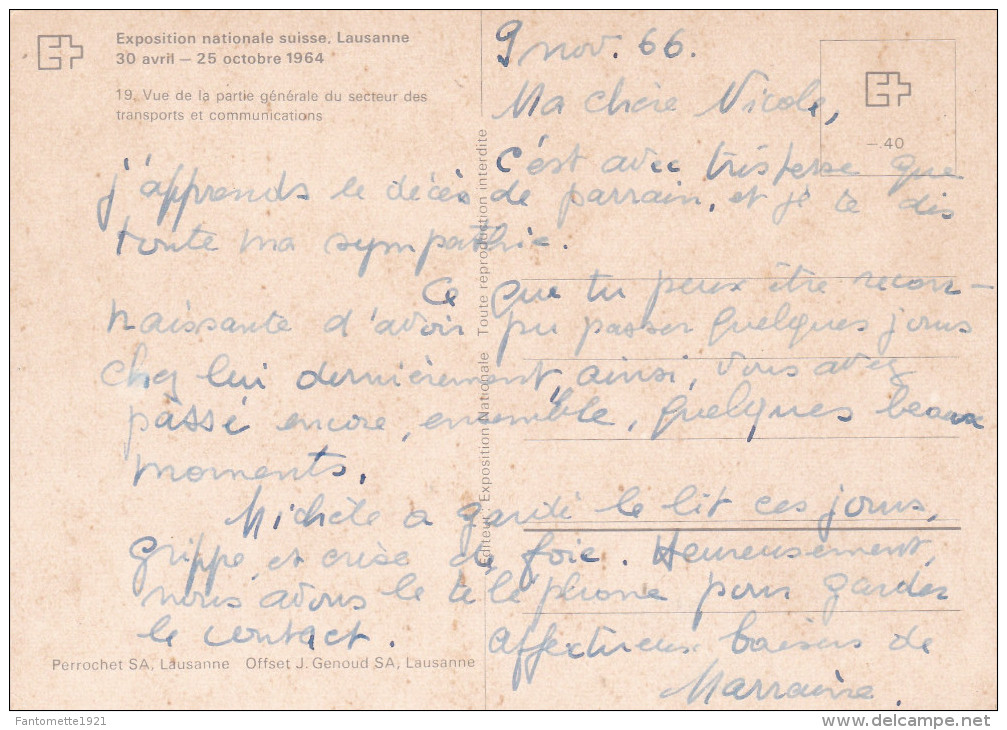 Exposition nationale suisse, Lausanne
30 avril – 25 octobre 1964
19. Vue de la partie générale du secteur des
transports et communications
– .40
Editeur: Exposition Nationale Toute reproduction interdite
9 nov. 66.
Ma chère Nicole,
c'est avec tristesse que
j'apprends le décès de parrain, et je te dis
toute ma sympathie.
Ce que tu peux être recon-
naissante d'avoir pu passer quelques jours
chez lui dernièrement, ainsi, vous avez
passé encore, ensemble, quelques beaux
moments.
Michèle a gardé le lit ces jours,
grippe, et crise de foie. Heureusement,
nous avons le téléphone pour garder
le contact. Affectueux baisers de
Marraine.
Perrochet SA, Lausanne Offset J. Genoud SA, Lausanne
Fantomette1921
delcampe.net